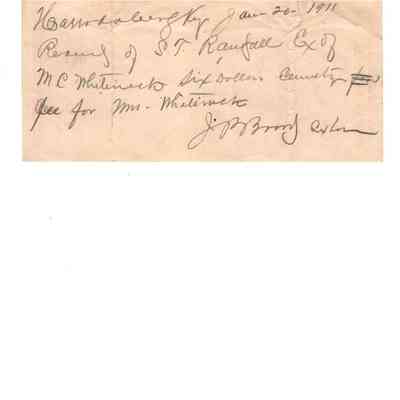 Harrodsburg Ky Jan 20 - 1911
Received of S T Randall Ex of
M C Whitenack Six Dollars Cemetery
fee for Mrs - Whitenack
J. B